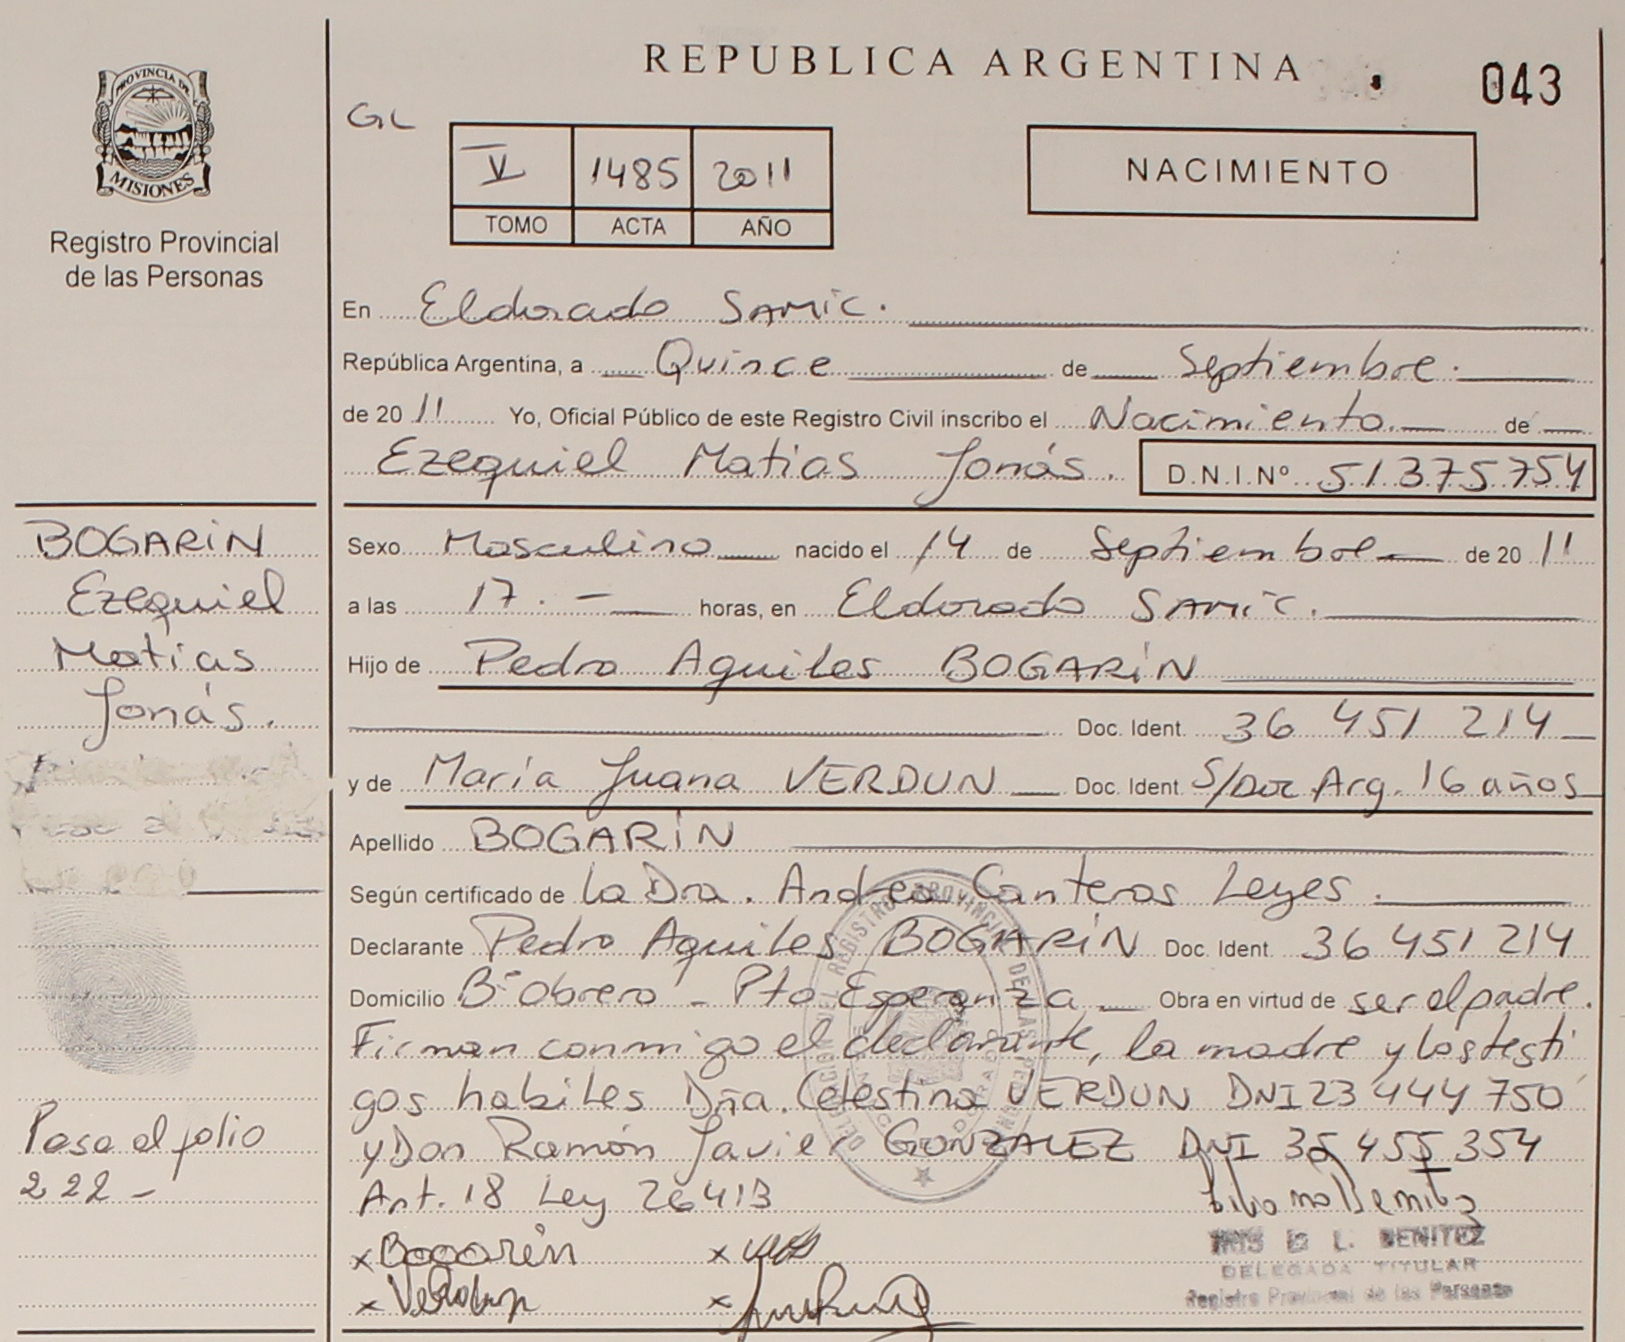 REPUBLICA ARGENTINA
043
PROVINCIA DE
MISIONES
Registro Provincial
de las Personas
GL
V 1485 2011
TOMO ACTA AÑO
NACIMIENTO
En Eldorado SAMIC.
República Argentina, a Quince de Septiembre.
de 2011 Yo, Oficial Público de este Registro Civil inscribo el Nacimiento de
Ezequiel Matias Jonás. D.N.I.Nº 51375754
BOGARIN
Ezequiel
Matias
Jonás.
Sexo Masculino nacido el 14 de Septiembre de 2011
a las 17.- horas, en Eldorado SAMIC.
Hijo de Pedro Aquiles BOGARIN
Doc. Ident. 36 451 214
y de María Juana VERDUN Doc. Ident. S/Doc Arg. 16 años
Apellido BOGARIN
Según certificado de la Dra. Andrea Canteros Leyes.
Declarante Pedro Aquiles BOGARIN Doc. Ident. 36 451 214
Domicilio Bº Obrero - Pto Esperanza Obra en virtud de ser el padre.
Firman conmigo el declarante, la madre y los testi
gos habiles Dña. Celestina VERDUN DNI 23 444 750
y Don Ramón Javier GONZALEZ DNI 455 354
Art. 18 Ley 26413
Pasa al folio
222 -
x Bogarin x
x Verdun x
BENITEZ
DELEGADA TITULAR
Registro Provincial de las Personas